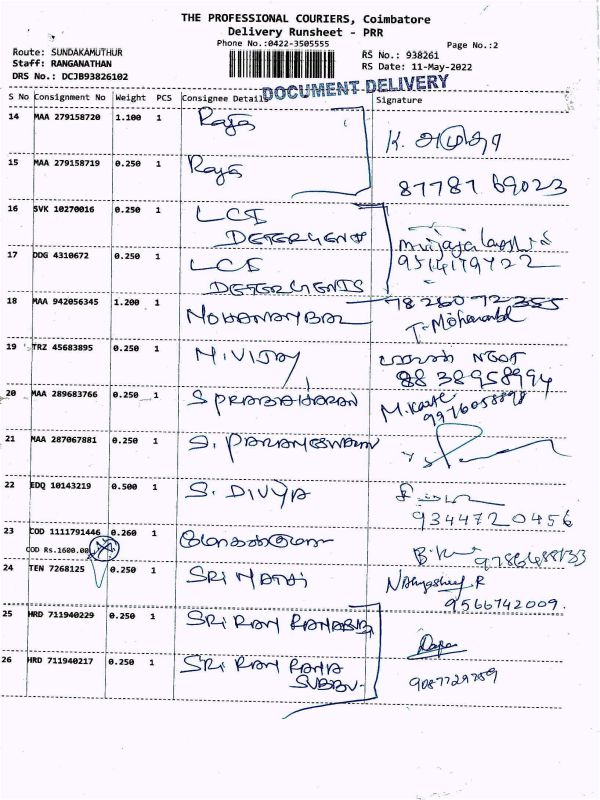 THE PROFESSIONAL COURIERS, Coimbatore
Delivery Runsheet - PRR
Phone No.:0422-3505555
Page No.:2
Route: SUNDAKAMUTHUR
Staff: RANGANATHAN
DRS No.: DCJB93826102
RS No.: 938261
RS Date: 11-May-2022
DOCUMENT DELIVERY
S No Consignment No Weight PCS Consignee Details Signature
14 MAA 279158720 1.100 1 Raja K.
15 MAA 279158719 0.250 1 Raja 87787 69023
16 SVK 10270016 0.250 1 LCI
DETERGENTS
17 DDG 4310672 0.250 1 LCI 9514179722
DETERGENTS
18 MAA 942056345 1.200 1 MOHANAMBAL 78260 72355
T. Mohanambal
19 TRZ 45683895 0.250 1 M.VIJAY
88 38958994
20 MAA 289683766 0.250 1 S PRABAHARAN
21 MAA 287067881 0.250 1 S. PARAMESWARAN
22 EDQ 10143219 0.500 1 S. DIVYA
9344720456
23 COD 1111791446 0.260 1
COD Rs.1600.00
24 TEN 7268125 0.250 1 SRI MATHI
9566742009.
25 HRD 711940229 0.250 1 SRI RAM
26 HRD 711940217 0.250 1 SRI RAM RAMA
SUBBU